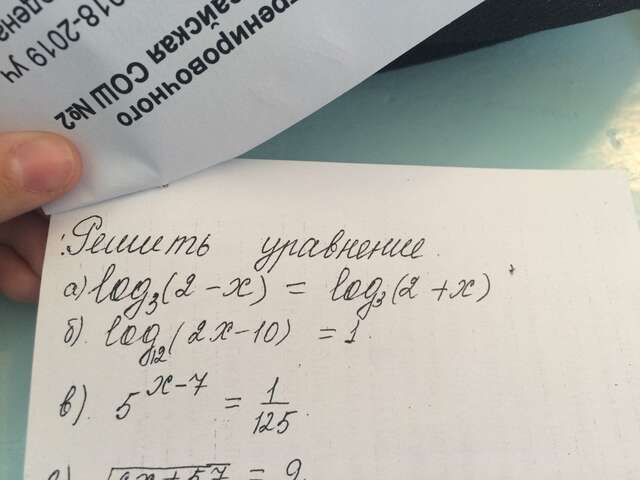 Решить уравнение.
а) log₃(2-x) = log₃(2+x)
б). log₁₂(2x-10) = 1.
в). 5^(x-7) = 1/125.
= 9.
тренировочного
СОШ №2
018-2019 уч